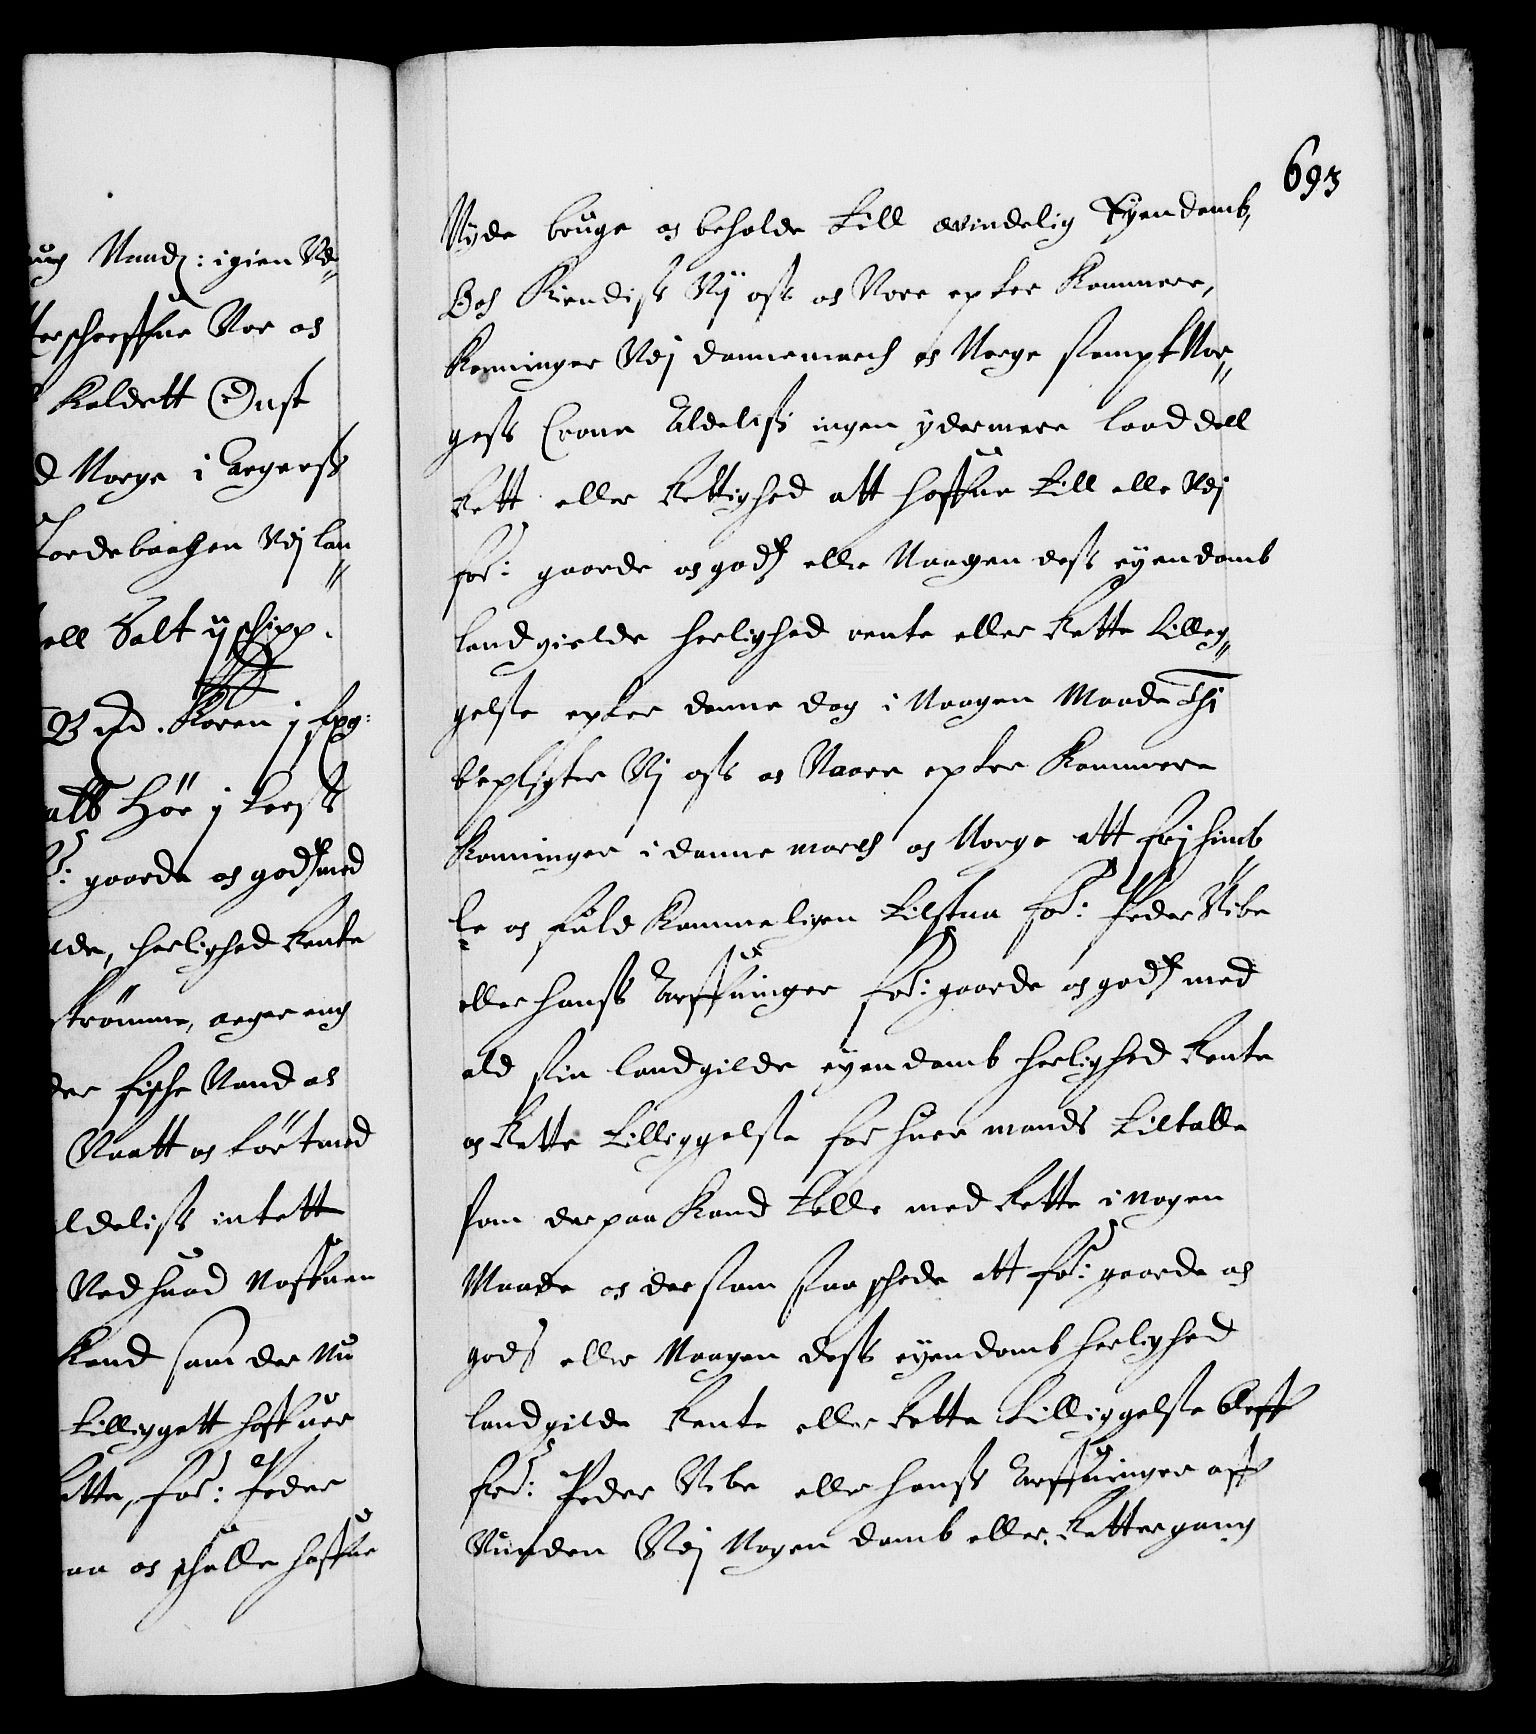 693
ug Naadz: igien Ud¬
terschreffne Vor oc
Kaldett Onst
d Norge i Aegerss
Jordebaagen Udj lan¬
ell Salt ij schipp.
Hud. Koren j spg:
alb Hör j Leest
for: gaarde oc godz med
lde, herlighed Rente
strömme, aager eng
der fische Vand oc
Vaatt oc tört med
ldeliss intett
Ved huad Naffuen
Kand som der Nu
tilliggett haffuer
ette, for: Peder
aa oc schulle haffue
Nyde bruge oc beholde till ævindelig Eyendomb,
Och Kiendiss Vij oss oc Vore epter Kommere,
Konninger Udj Dannemarch oc Norge sampt Nor¬
gess Crone Aldeliss ingen ydermere lood dell
Rett eller Rettighed att haffue till eller Udj
for: gaarde oc godz eller Naagen dess eyendomb
landgielde herlighed rente eller Rette tilleg¬
gelse epter denne dag i Naagen Maade Thi
bepligter Vj oss oc Vaare epter Kommere
Konninger i Dannemarch oc Norge att frj himb¬
le oc fuldkommeligen tilstaa for: Peder Vibe
eller hanss Arffuinger for: gaarde oc godz med
ald sin landgilde eyendomb herlighed Rente
oc Rette tilliggelse for huer mands tiltalle
som derpaa Kand talle med Rette i nogen
Maade oc dersom saa schede att for: gaarde oc
gods eller Naagen dess eyendomb herlighed
landgilde Rente eller Rette tilliggelse bleff
for: Peder Vibe eller hanss Arffuinger aff
Vunden Udj Nogen domb eller Rettergang